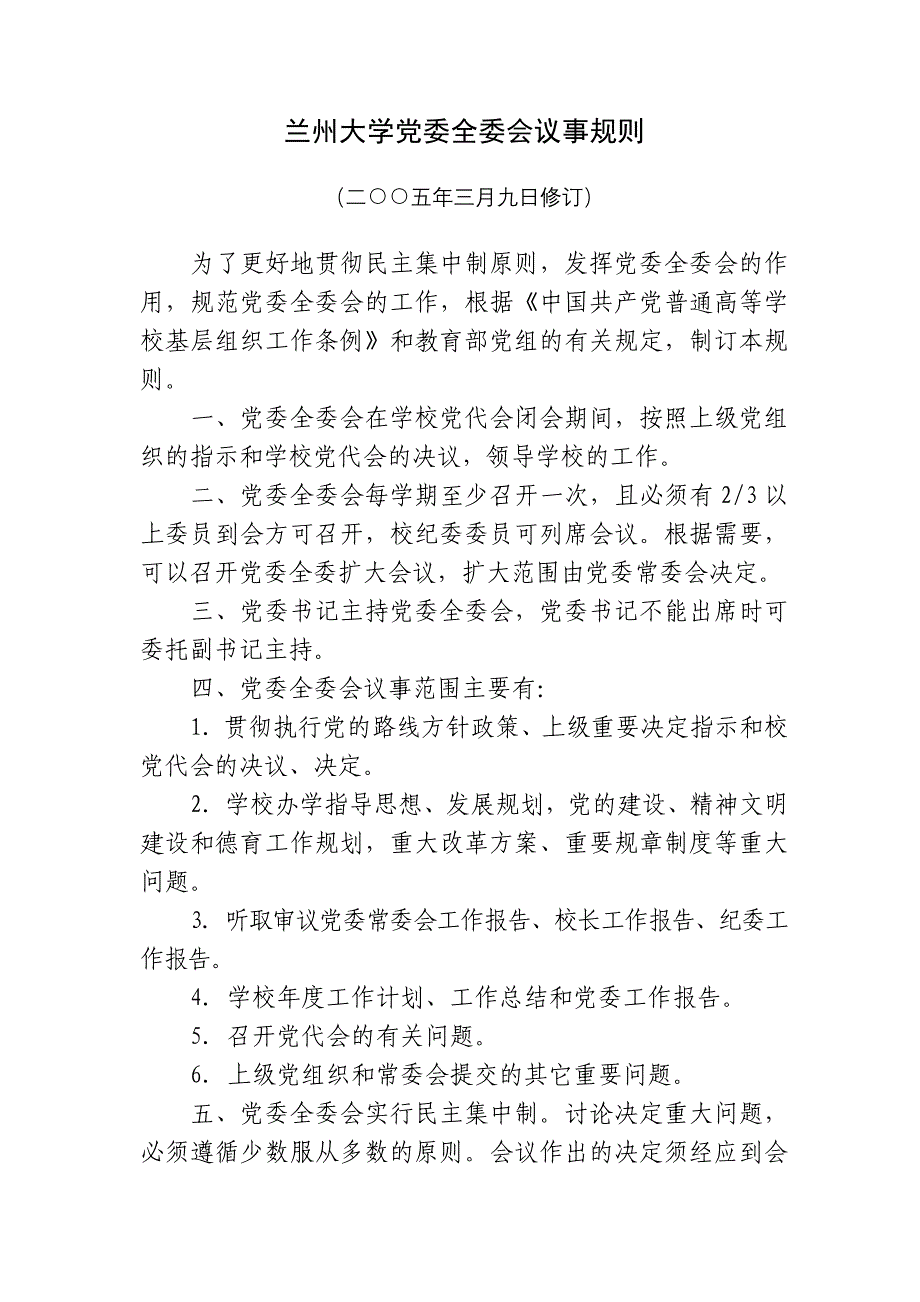 兰州大学党委全委会议事规则
（二○○五年三月九日修订）
为了更好地贯彻民主集中制原则，发挥党委全委会的作
用，规范党委全委会的工作，根据《中国共产党普通高等学
校基层组织工作条例》和教育部党组的有关规定，制订本规
则。
一、党委全委会在学校党代会闭会期间，按照上级党组
织的指示和学校党代会的决议，领导学校的工作。
二、党委全委会每学期至少召开一次，且必须有 2/3 以
上委员到会方可召开，校纪委委员可列席会议。根据需要，
可以召开党委全委扩大会议，扩大范围由党委常委会决定。
三、党委书记主持党委全委会，党委书记不能出席时可
委托副书记主持。
四、党委全委会议事范围主要有：
1．贯彻执行党的路线方针政策、上级重要决定指示和校
党代会的决议、决定。
2．学校办学指导思想、发展规划，党的建设、精神文明
建设和德育工作规划，重大改革方案、重要规章制度等重大
问题。
3．听取审议党委常委会工作报告、校长工作报告、纪委工
作报告。
4．学校年度工作计划、工作总结和党委工作报告。
5．召开党代会的有关问题。
6．上级党组织和常委会提交的其它重要问题。
五、党委全委会实行民主集中制。讨论决定重大问题，
必须遵循少数服从多数的原则。会议作出的决定须经应到会